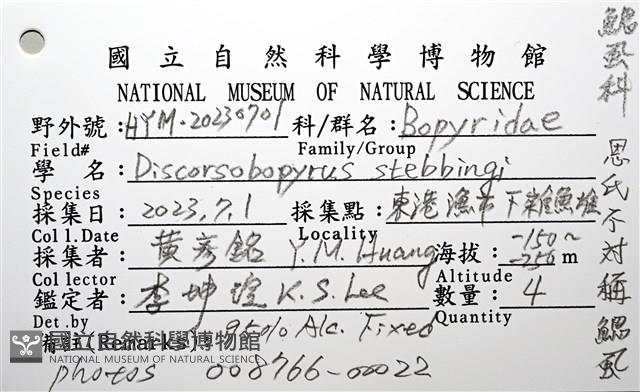 國立自然科學博物館
NATIONAL MUSEUM OF NATURAL SCIENCE
野外號：HYM.20230701 科/群名：Bopyridae
Field# Family/Group
學名：Discorsobopyrus stebbingi
Species
採集日：2023.7.1 採集點：東港漁市下雜魚堆
Coll.Date Locality
採集者：黃彥銘 Y.M.Huang 海拔：-150~-250m
Collector Altitude
鑑定者：李坤瑄 K.S.Lee 數量：4
Det.by Quantity
備註(Remarks) 95% Alc. Fixed
國立自然科學博物館
NATIONAL MUSEUM OF NATURAL SCIENCE
photos 008766-00022
鰓蝨科 恩氏不對稱鰓蝨